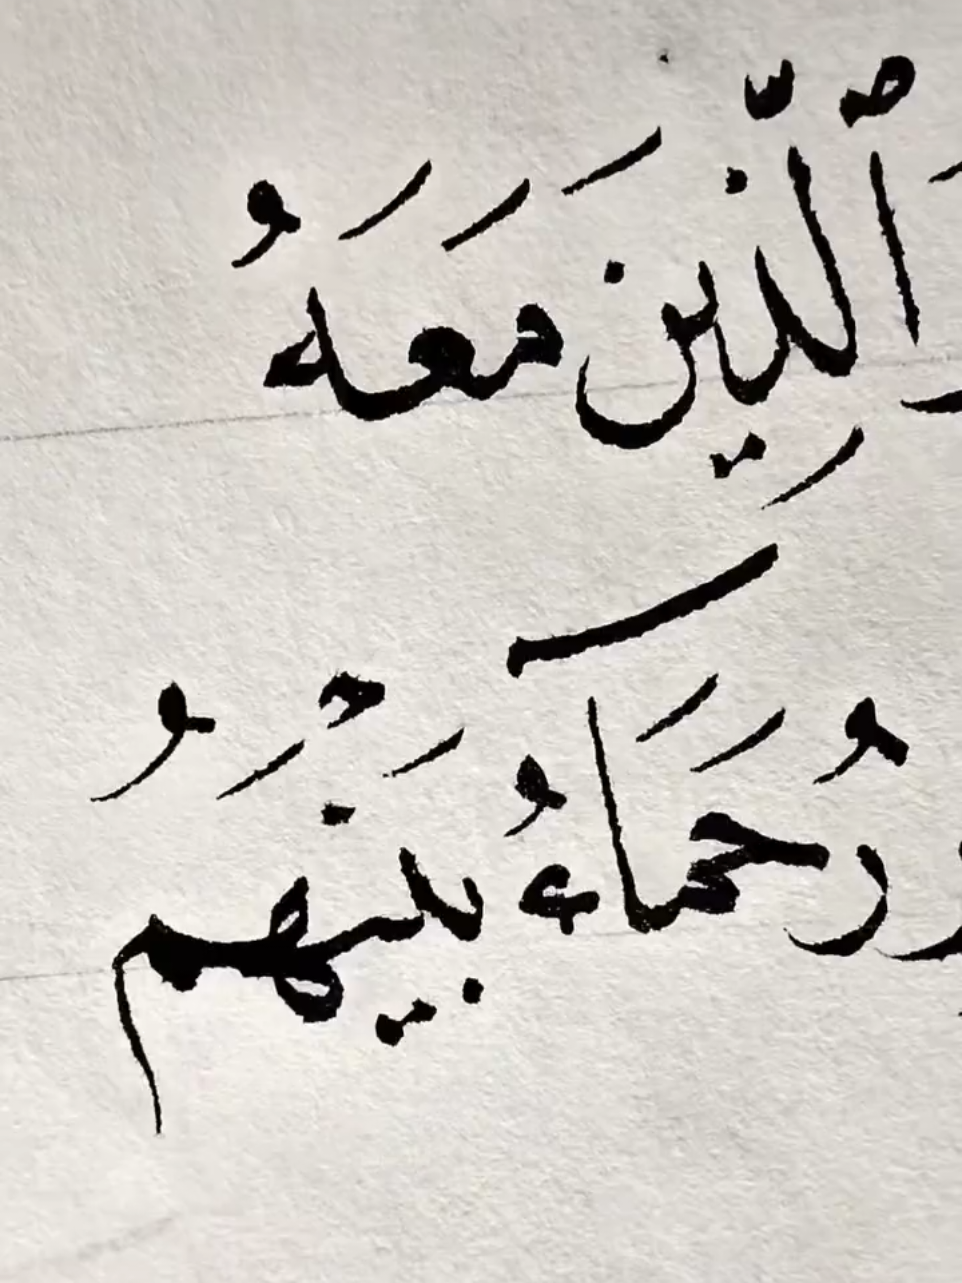 ٱلَّذِينَ مَعَهُ
رُحَمَآءُ بَيْنَهُمُ